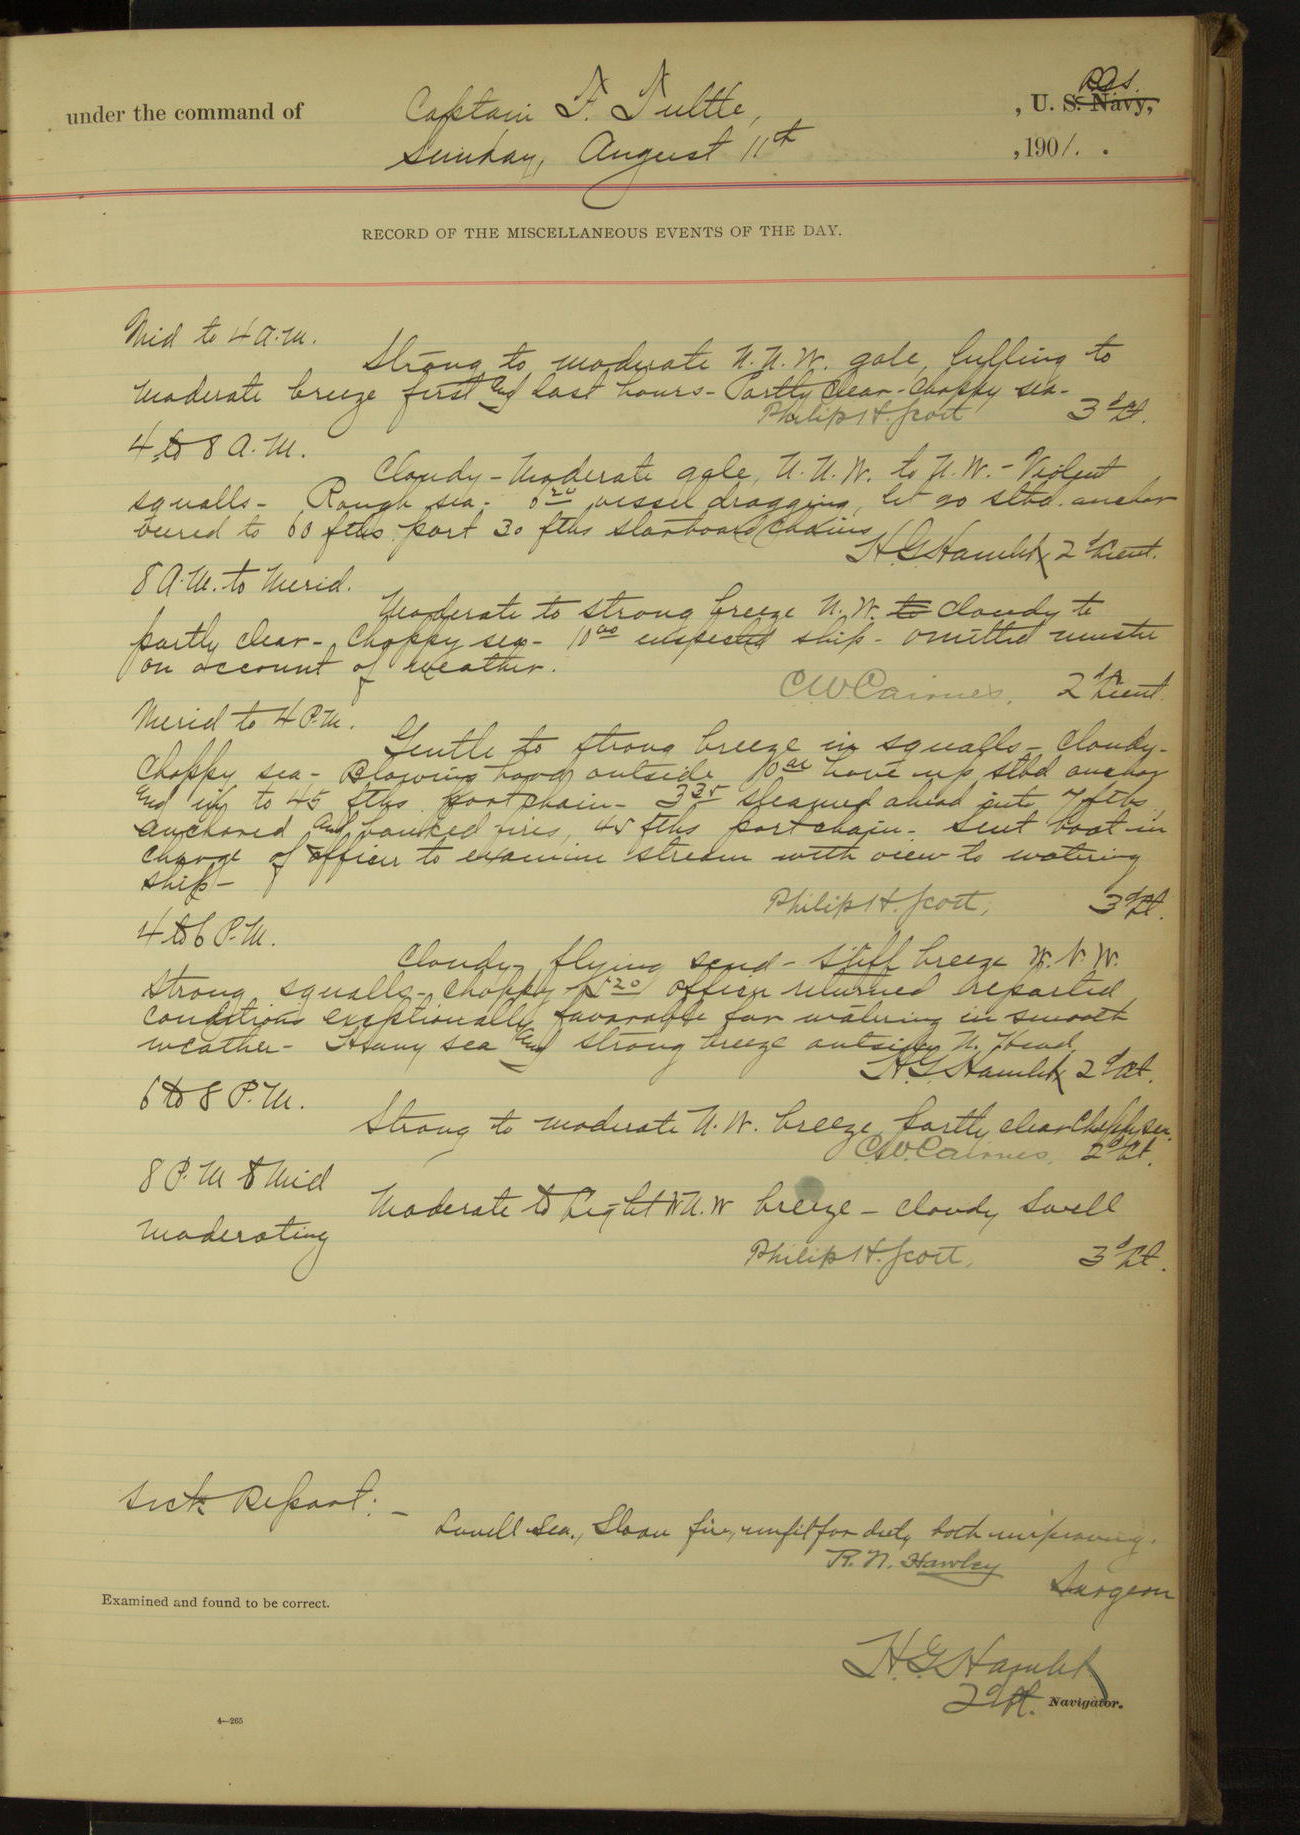 under the command of Captain F. Tuttle, , U. S. Navy, R.C.S.
Sunday, August 11th , 1901.
RECORD OF THE MISCELLANEOUS EVENTS OF THE DAY.
Mid to 4 A.M.
Strong to moderate N.N.W. gale, lulling to
moderate breeze first and last hours - Partly clear - choppy sea -
Philip H. Scott 3d Lt.
4 to 8 A.M.
Cloudy - Moderate gale, N.N.W. to N.W. - Violent
squalls - Rough sea - vessel dragging, let go stbd. anchor
veered to 60 fths port 30 fths starboard chains
H.G. Hamlet 2d Lieut.
8 A.M. to Merid.
Moderate to strong breeze N.W. to cloudy to
partly clear - Choppy sea - 10 00 inspected ship - omitted muster
on account of weather.
C.W. Cairnes, 2d Lieut.
Merid to 4 P.M.
Gentle to strong breeze in squalls - Cloudy -
Choppy sea - Blowing hard outside hove up stbd anchor
and in to 45 fths port chain - 3 35 steamed ahead into 7 fths
anchored and banked fires, 45 fths port chain - Sent boat in
charge of officer to examine stream with view to watering
ship -
Philip H. Scott, 3d Lt.
4 to 6 P.M.
Cloudy, flying scud - Stiff breeze W.N.W.
strong squalls - choppy - 5 20 officer returned reported
conditions exceptionally favorable for watering in smooth
weather - Heavy sea and strong breeze outside N. Head.
H.G. Hamlet 2d Lt.
6 to 8 P.M.
Strong to moderate N.W. breeze, partly clear Choppy sea.
C.W. Cairnes, 2d Lt.
8 P.M to Mid
Moderate to light W.N.W breeze - cloudy Swell
moderating
Philip H. Scott, 3d Lt.
Sick Report: -
Lovell Sea., Sloan fire, unfit for duty both improving.
R. N. Hawley
Surgeon
Examined and found to be correct.
H.G. Hamlet
2d Lt. Navigator.
4-265